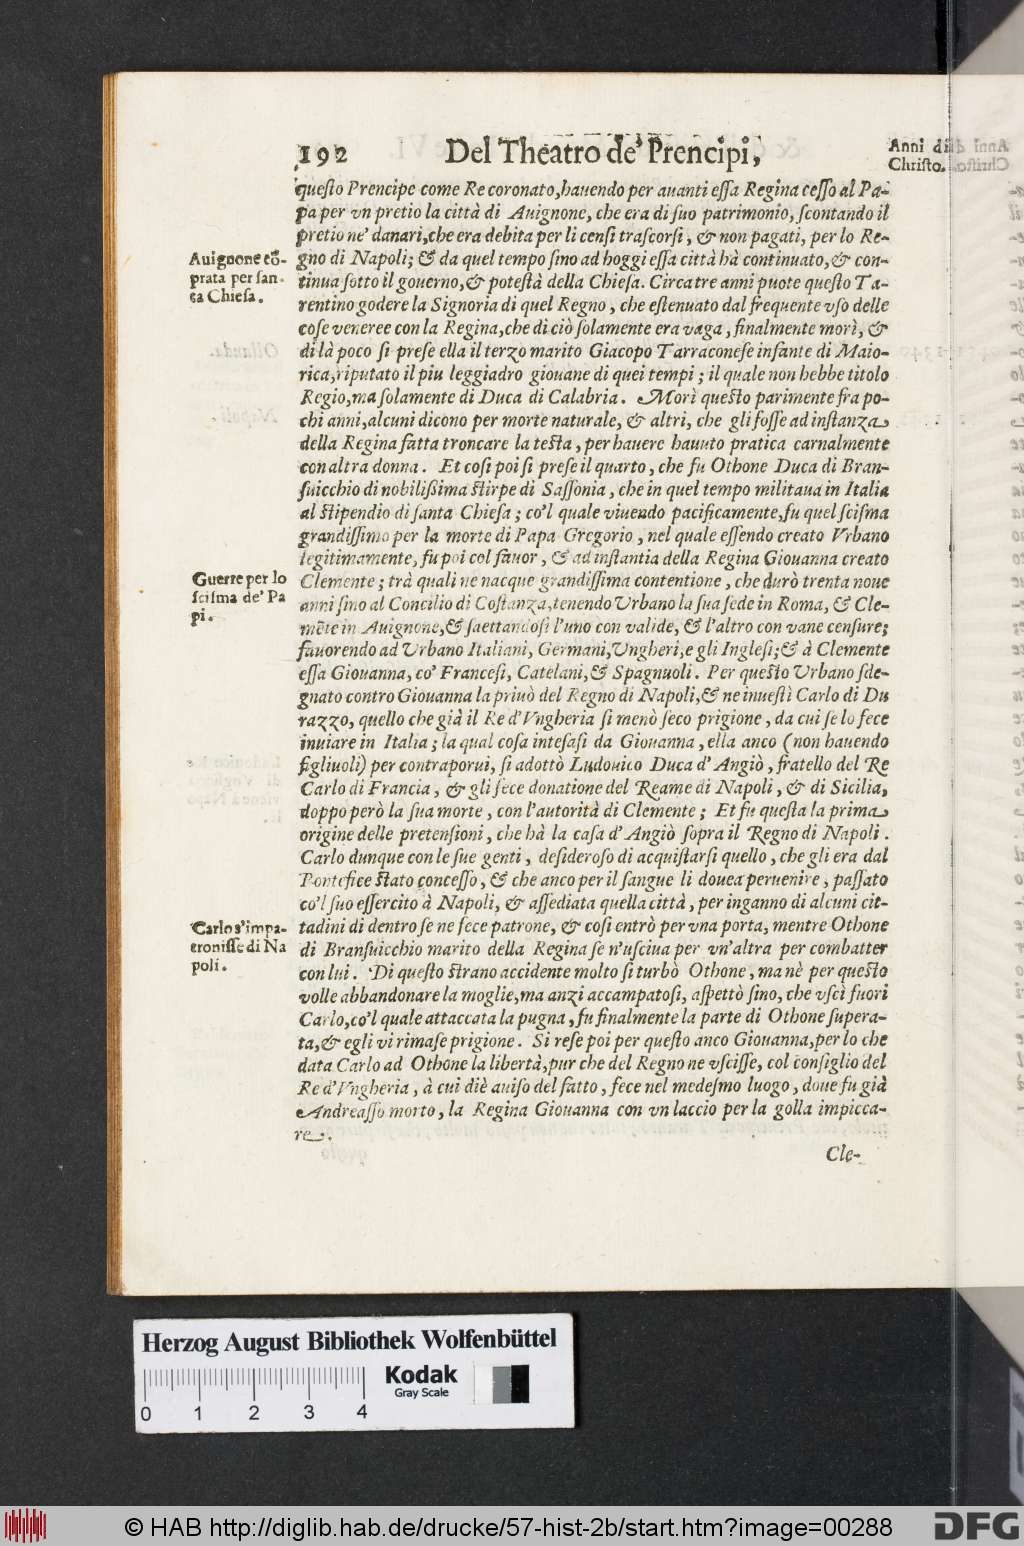 192 Del Theatro de' Prencipi,
Anni di
Christo.
questo Prencipe come Re coronato, hauendo per auanti essa Regina cesso al Pa-
pa per vn pretio la città di Auignone, che era di suo patrimonio, scontando il
pretio ne' danari, che era debita per li censi trascorsi, & non pagati, per lo Re-
Auignone cõ-
prata per san-
ta Chiesa.
gno di Napoli; & da quel tempo sino ad hoggi essa città hà continuato, & con-
tinua sotto il gouerno, & potestà della Chiesa. Circa tre anni puote questo Ta-
rentino godere la Signoria di quel Regno, che estenuato dal frequente vso delle
cose veneree con la Regina, che di ciò solamente era vaga, finalmente morì, &
di là poco si prese ella il terzo marito Giacopo Tarraconese infante di Maio-
rica, riputato il piu leggiadro giouane di quei tempi; il quale non hebbe titolo
Regio, ma solamente di Duca di Calabria. Morì questo parimente fra po-
chi anni, alcuni dicono per morte naturale, & altri, che gli fosse ad instanza
della Regina fatta troncare la testa, per hauere hauuto pratica carnalmente
con altra donna. Et cosi poi si prese il quarto, che fu Othone Duca di Bran-
suicchio di nobilissima stirpe di Sassonia, che in quel tempo militaua in Italia
al stipendio di santa Chiesa; co'l quale viuendo pacificamente, fu quel scisma
grandissimo per la morte di Papa Gregorio, nel quale essendo creato Vrbano
legitimamente, fu poi col fauor, & ad instantia della Regina Giouanna creato
Guerre per lo
scisma de' Pa
pi.
Clemente; trà quali ne nacque grandissima contentione, che durò trenta noue
anni sino al Concilio di Costanza, tenendo Vrbano la sua sede in Roma, & Cle-
mẽte in Auignone, & saettandosi l'uno con valide, & l'altro con vane censure;
fauorendo ad Vrbano Italiani, Germani, Vngheri, e gli Inglesi; & à Clemente
essa Giouanna, co' Francesi, Catelani, & Spagnuoli. Per questo Vrbano sde-
gnato contro Giouanna la priuò del Regno di Napoli, & ne inuestì Carlo di Du
razzo, quello che già il Re d'Vngheria si menò seco prigione, da cui se lo fece
inuiare in Italia; la qual cosa intesasi da Giouanna, ella anco (non hauendo
figliuoli) per contraporui, si adottò Ludouico Duca d'Angiò, fratello del Re
Carlo di Francia, & gli fece donatione del Reame di Napoli, & di Sicilia,
doppo però la sua morte, con l'autorità di Clemente; Et fu questa la prima
origine delle pretensioni, che hà la casa d'Angiò sopra il Regno di Napoli.
Carlo dunque con le sue genti, desideroso di acquistarsi quello, che gli era dal
Pontefice stato concesso, & che anco per il sangue li douea peruenire, passato
co'l suo essercito à Napoli, & assediata quella città, per inganno di alcuni cit-
Carlo s'impa-
tronisse di Na
poli.
tadini di dentro se ne fece patrone, & cosi entrò per vna porta, mentre Othone
di Bransuicchio marito della Regina se n'usciua per vn'altra per combatter
con lui. Di questo strano accidente molto si turbò Othone, ma nè per questo
volle abbandonare la moglie, ma anzi accampatosi, aspettò sino, che vscì fuori
Carlo, co'l quale attaccata la pugna, fu finalmente la parte di Othone supera-
ta, & egli vi rimase prigione. Si rese poi per questo anco Giouanna, per lo che
data Carlo ad Othone la libertà, pur che del Regno ne vscisse, col consiglio del
Re d'Vngheria, à cui diè auiso del fatto, fece nel medesmo luogo, doue fu già
Andreasso morto, la Regina Giouanna con vn laccio per la golla impicca-
re.
Cle-
Herzog August Bibliothek Wolfenbüttel
Kodak
Gray Scale
0 1 2 3 4
© HAB http://diglib.hab.de/drucke/57-hist-2b/start.htm?image=00288
DFG